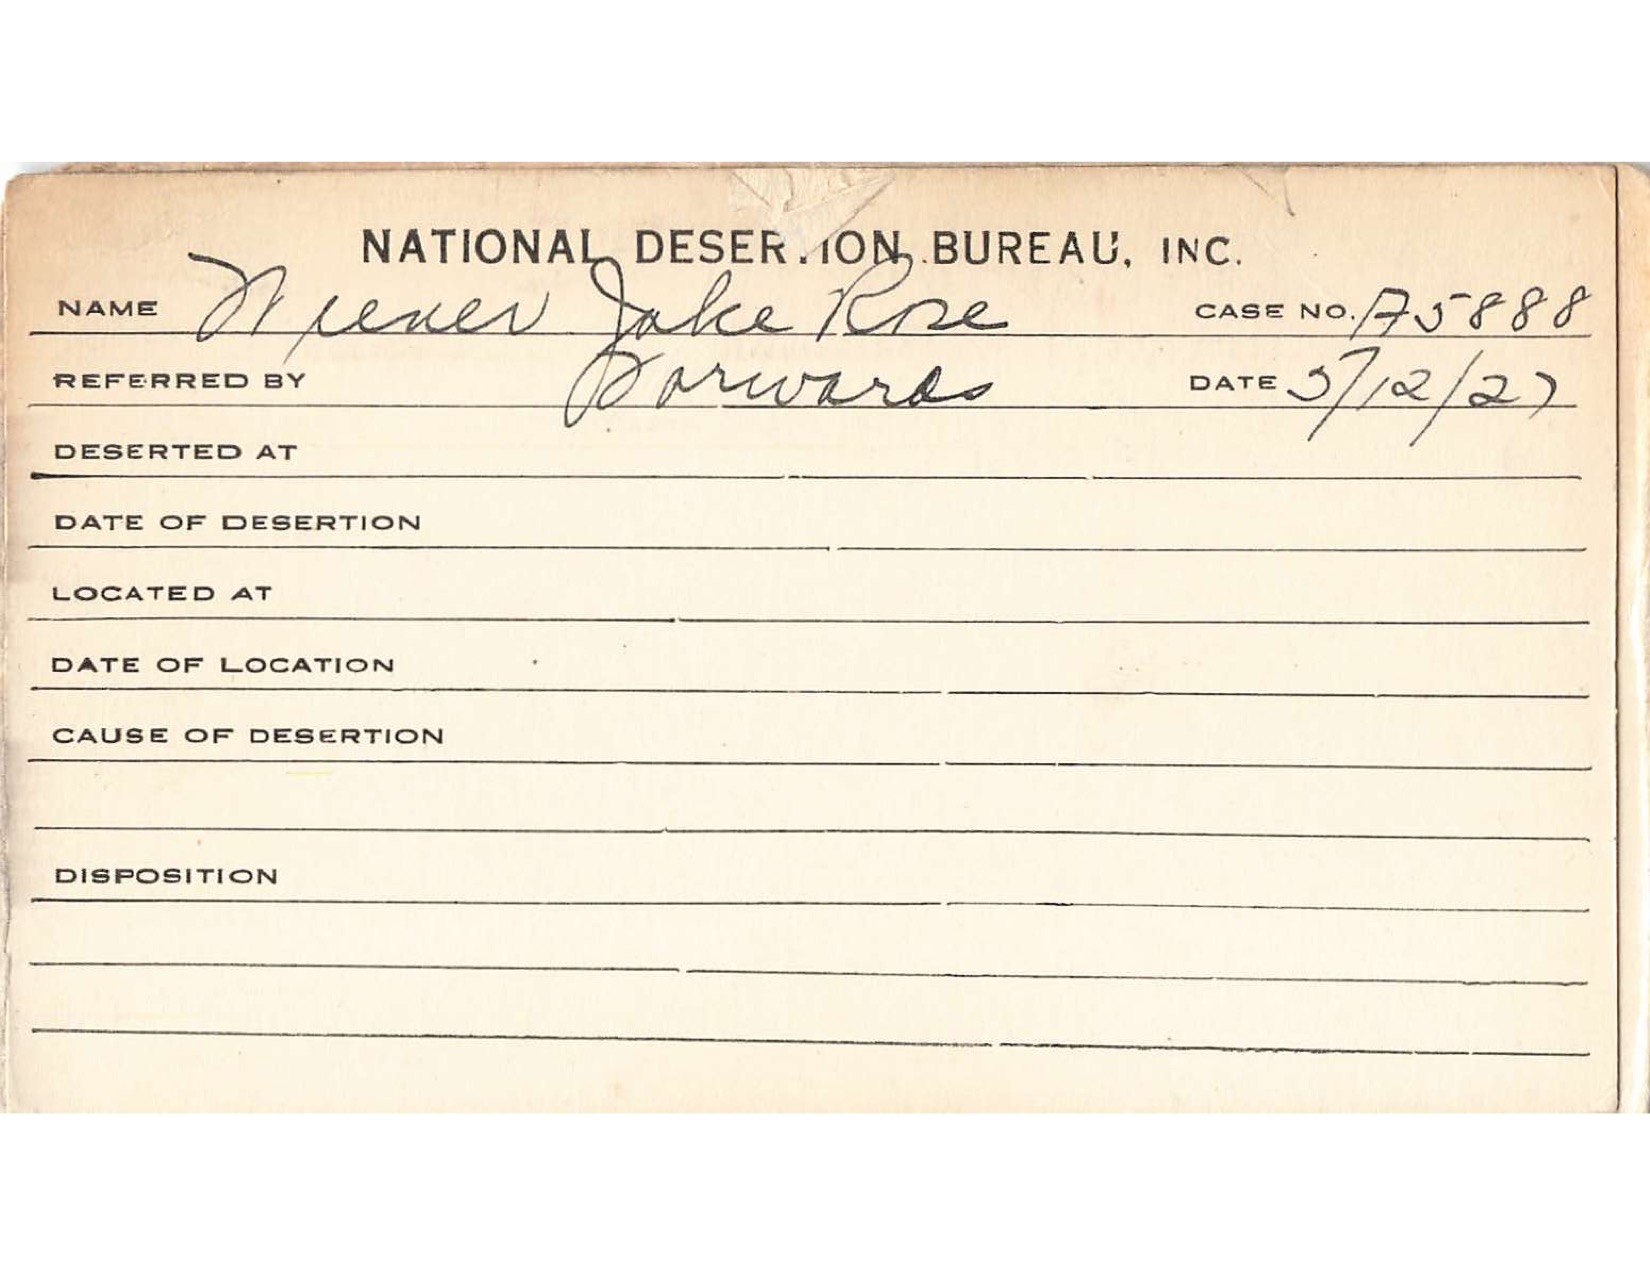 NATIONAL DESERTION BUREAU, INC.
NAME Wiener Jake Rose CASE NO. A5888
REFERRED BY Forwards DATE 5/12/27
DESERTED AT
DATE OF DESERTION
LOCATED AT
DATE OF LOCATION
CAUSE OF DESERTION
DISPOSITION